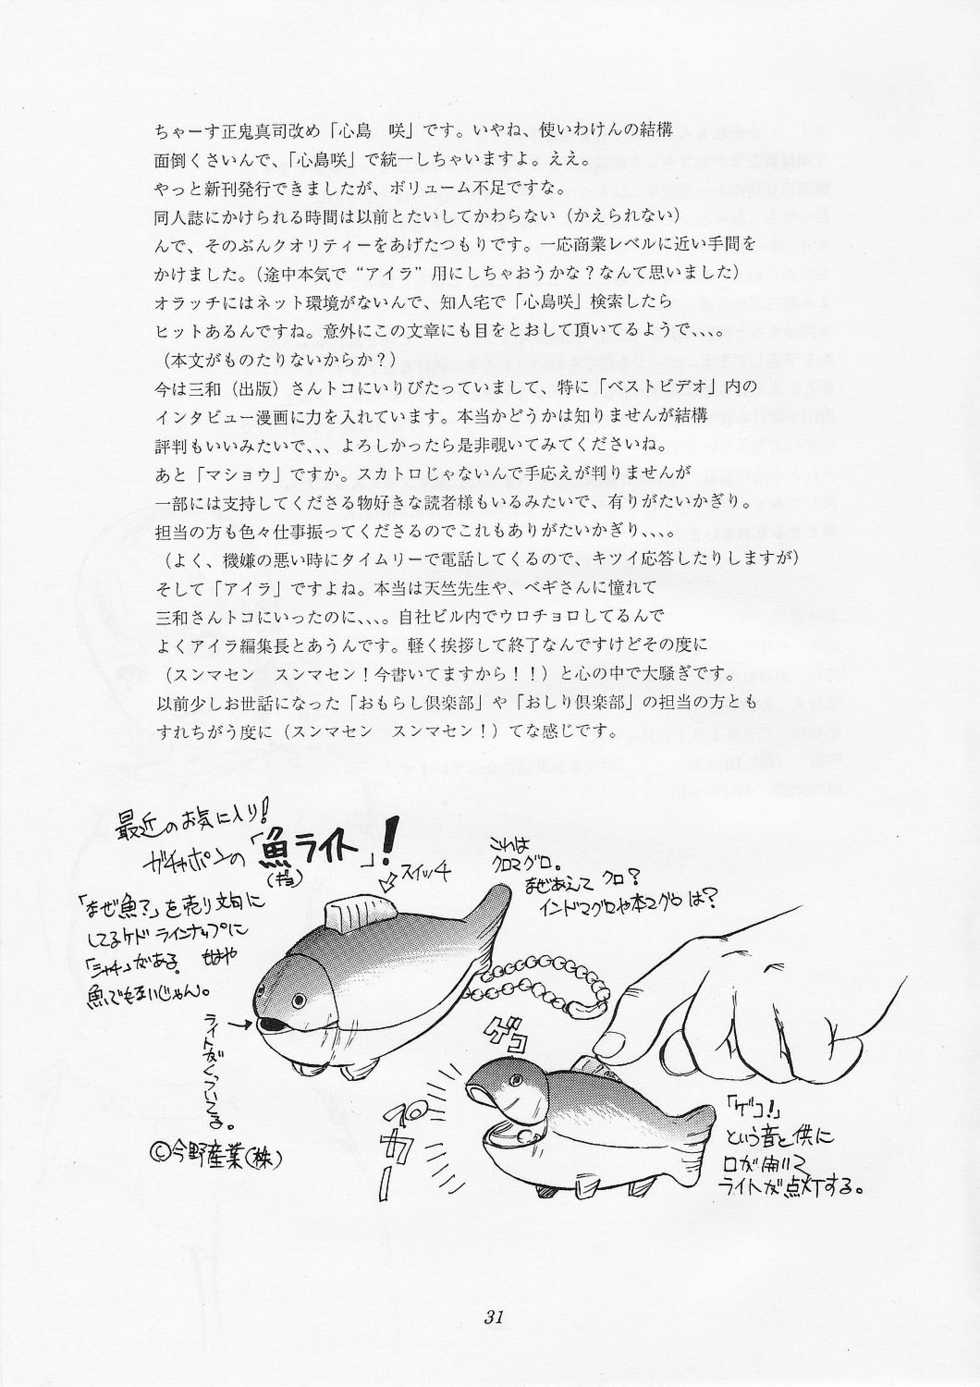 ちゃーす正鬼真司改め「心島　咲」です。いやね、使いわけんの結構
面倒くさいんで、「心島咲」で統一しちゃいますよ。ええ。
やっと新刊発行できましたが、ボリューム不足ですな。
同人誌にかけられる時間は以前とたいしてかわらない（かえられない）
んで、そのぶんクオリティーをあげたつもりです。一応商業レベルに近い手間を
かけました。（途中本気で“アイラ”用にしちゃおうかな？なんて思いました）
オラッチにはネット環境がないんで、知人宅で「心島咲」検索したら
ヒットあるんですね。意外にこの文章にも目をとおして頂いてるようで､､､。
（本文がものたりないからか？）
今は三和（出版）さんトコにいりびたっていまして、特に「ベストビデオ」内の
インタビュー漫画に力を入れています。本当かどうかは知りませんが結構
評判もいいみたいで､､､よろしかったら是非覗いてみてくださいね。
あと「マショウ」ですか。スカトロじゃないんで手応えが判りませんが
一部には支持してくださる物好きな読者様もいるみたいで、有りがたいかぎり。
担当の方も色々仕事振ってくださるのでこれもありがたいかぎり､､､。
（よく、機嫌の悪い時にタイムリーで電話してくるので、キツイ応答したりしますが）
そして「アイラ」ですよね。本当は天竺先生や、ベギさんに憧れて
三和さんトコにいったのに､､､。自社ビル内でウロチョロしてるんで
よくアイラ編集長とあうんです。軽く挨拶して終了なんですけどその度に
（スンマセン　スンマセン！今書いてますから！！）と心の中で大騒ぎです。
以前少しお世話になった「おもらし倶楽部」や「おしり倶楽部」の担当の方とも
すれちがう度に（スンマセン　スンマセン！）てな感じです。
最近のお気に入り！
ガチャポンの「魚ライト」！
（ギョ）
スイッチ
これは
クロマグロ。
なぜあえて クロ？
インドマグロや本マグロは？
「なぜ魚？」を売り文句に
してるケド ラインナップに
「シャチ」がある。もはや
魚でもないじゃん。
ライトがくっついてる。
©今野産業（株）
ゲコ
ペカー
「ゲコ！」
という音と供に
口が開いて
ライトが点灯する。
31